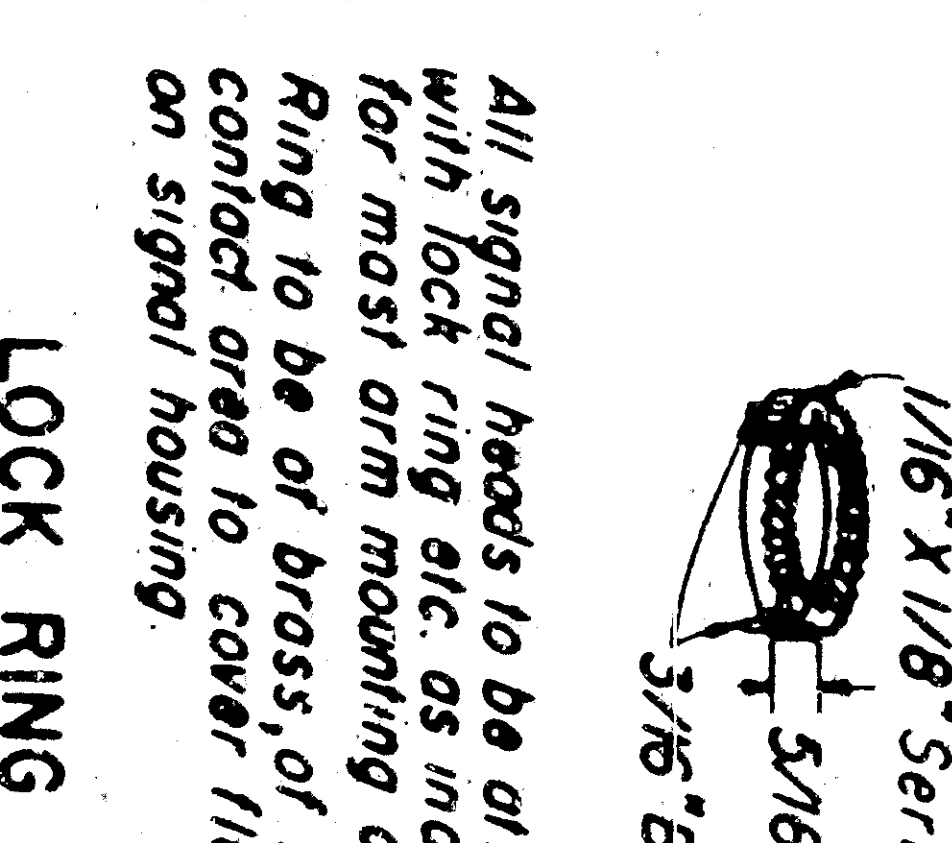 1/16" X 1/8" Ser
5/16
3/16"
All signal heads to be of
with lock ring etc. as in
for mast arm mounting
Ring to be of brass, of
contact area to cover
on signal housing.
LOCK RING